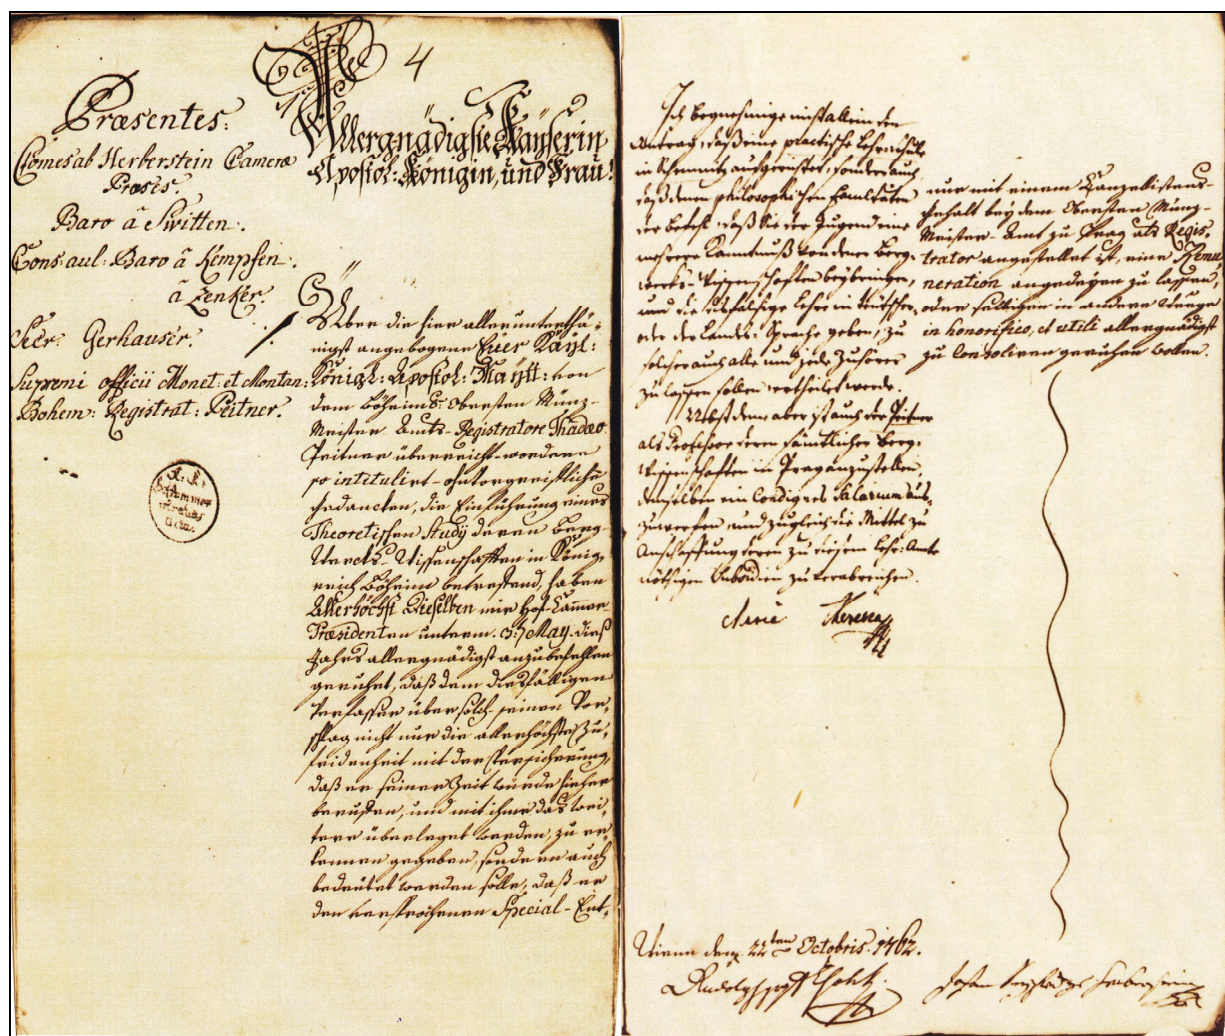 4
Præsentes:
Comes ab Herberstein Cameræ
Præses.
Baro â Switten.
Cons: aul: Baro â Kempfen.
â Zenker.
Secr: Gerhauser.
Supremi officii Monet: et Montan:
Bohem: Registrat: Peitner.
Allergnädigste Kayserin
Apostol: Königin, und Frau!
Über die hier allerunterthä-
nigst angebogene Euer Kayl:
Königl: Apostol: Maytt: von
dem Böheims: Obersten Münz-
Meister Amts-Registratore Thadæo
Peitner überreicht-wordene
so intitulirt-ohnvorgreifliche
Gedancken, die Einführung eines
Theoretischen Studÿ deren Berg-
Wercks-Wissenschafften in König-
reich Böheim betreffend, haben
Allerhöchst Dieselben mir Hof-Cammer-
Præsidenten unterm 3: May dieß
Jahrs allergnädigst anzubefehlen
geruhet, daß dem diesfälligen
Verfasser über solch-seinen Vor-
schlag nicht nur die allerhöchste Zu-
fridenheit mit der Versicherung,
daß er seiner Zeit würde hieher
beruffen, und mit ihme das wei-
tere überleget werden, zu er-
kennen gegeben, sondern auch
bedeutet werden solle, daß er
den versprochenen Special-Ent-
Ich begnehmige nicht allein den
Antrag, daß eine practische Lehrschule
in Schemnitz aufgerichtet, sondern auch
daß denen philosophischen Facultäten
der Befehl, daß Sie der Jugend eine
mehrere Kanntnuß von denen Berg-
wercks-Wissenschaften beybringen,
und die diesfälige Lehre in teutscher,
oder der Landes-Sprache geben, zu
solcher auch alle und jede Zuhörer
zulassen sollen, ertheilet werde.
Nebst deme aber ist auch der Peitner
als Professor deren sämtlicher Berg-
Wissenschaften in Prag anzustellen,
demselben ein Condignes Salarium aus-
zuwerfen, und zugleich die Mittel zu
Anschaffung deren zu diesem Lehr-Amte
nöthigen Subsidien zu verabreichen.
Maria Theresia
nur mit einem Canzellistens-
Gehalt bey dem Obersten Münz-
Meister-Amt zu Prag als Regis-
trator angestellet ist, eine Remu-
neration angedeyen zu lassen,
oder selbigen in andere Weege
in honorifico, et utili allergnädigst
zu Consoliren geruhen wollen.
Vienn den 22ten Octobris. 1762.